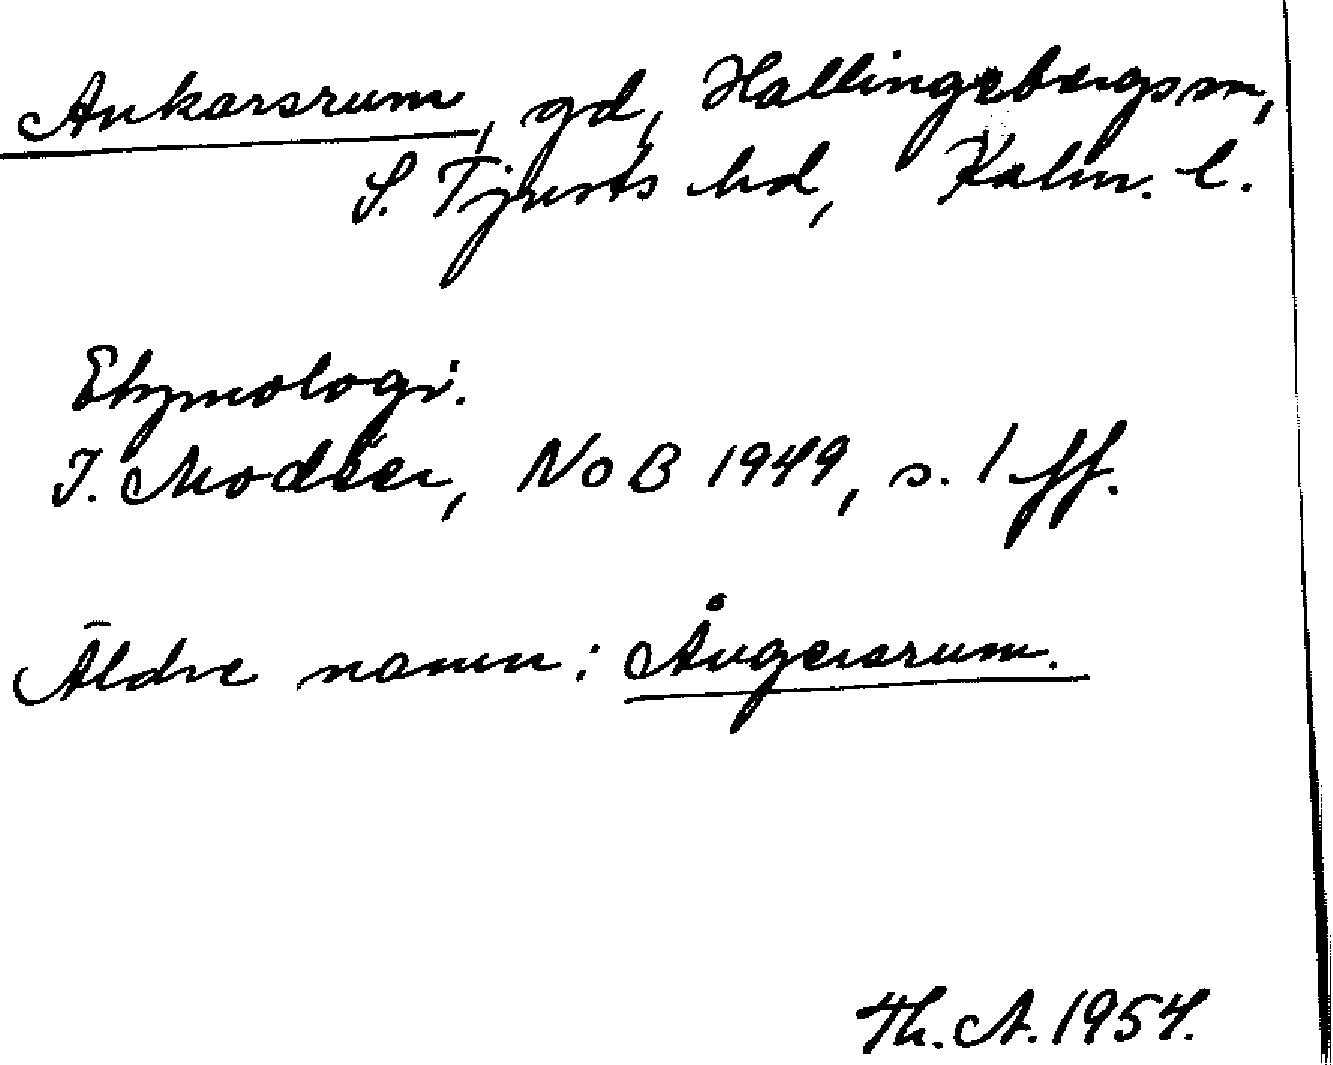 Ankarsrum, gd, Hallingebergs sn,
S. Tjusts hd, Kalm. l.
Etymologi.
I. Modéer, NoB 1949, s. 1 ff.
Äldre namn: Ångersrum.
Th. A. 1954.